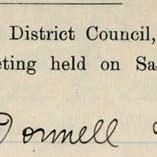 District Council,
eting held on Sa
Donnell